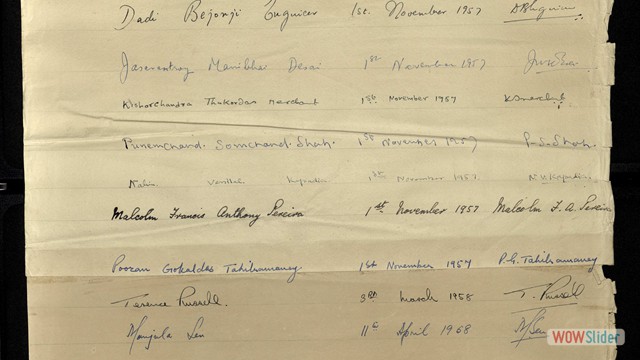 Dadi Bejonji Tuguicer 1st. November 1957
Jaswantray Manibhai Desai 1st November 1957
Kishorchandra Thakordas Merchant 1st November 1957 K.T.Merchant
Punemchand. Somchand. Shah. 1st November 1957 P.S. Shah.
Vanilal Kapadia 1st November 1957 Kapadia
Malcolm Francis Anthony Pereira 1st November 1957 Malcolm F. A. Pereira
Poozan Gokaldas Tahilramaney 1st November 1957 P. G. Tahilramaney
Terence Russell. 3rd March 1958 T. Russell
Manjula Sen 11th April 1958 MSen
WOWSlider